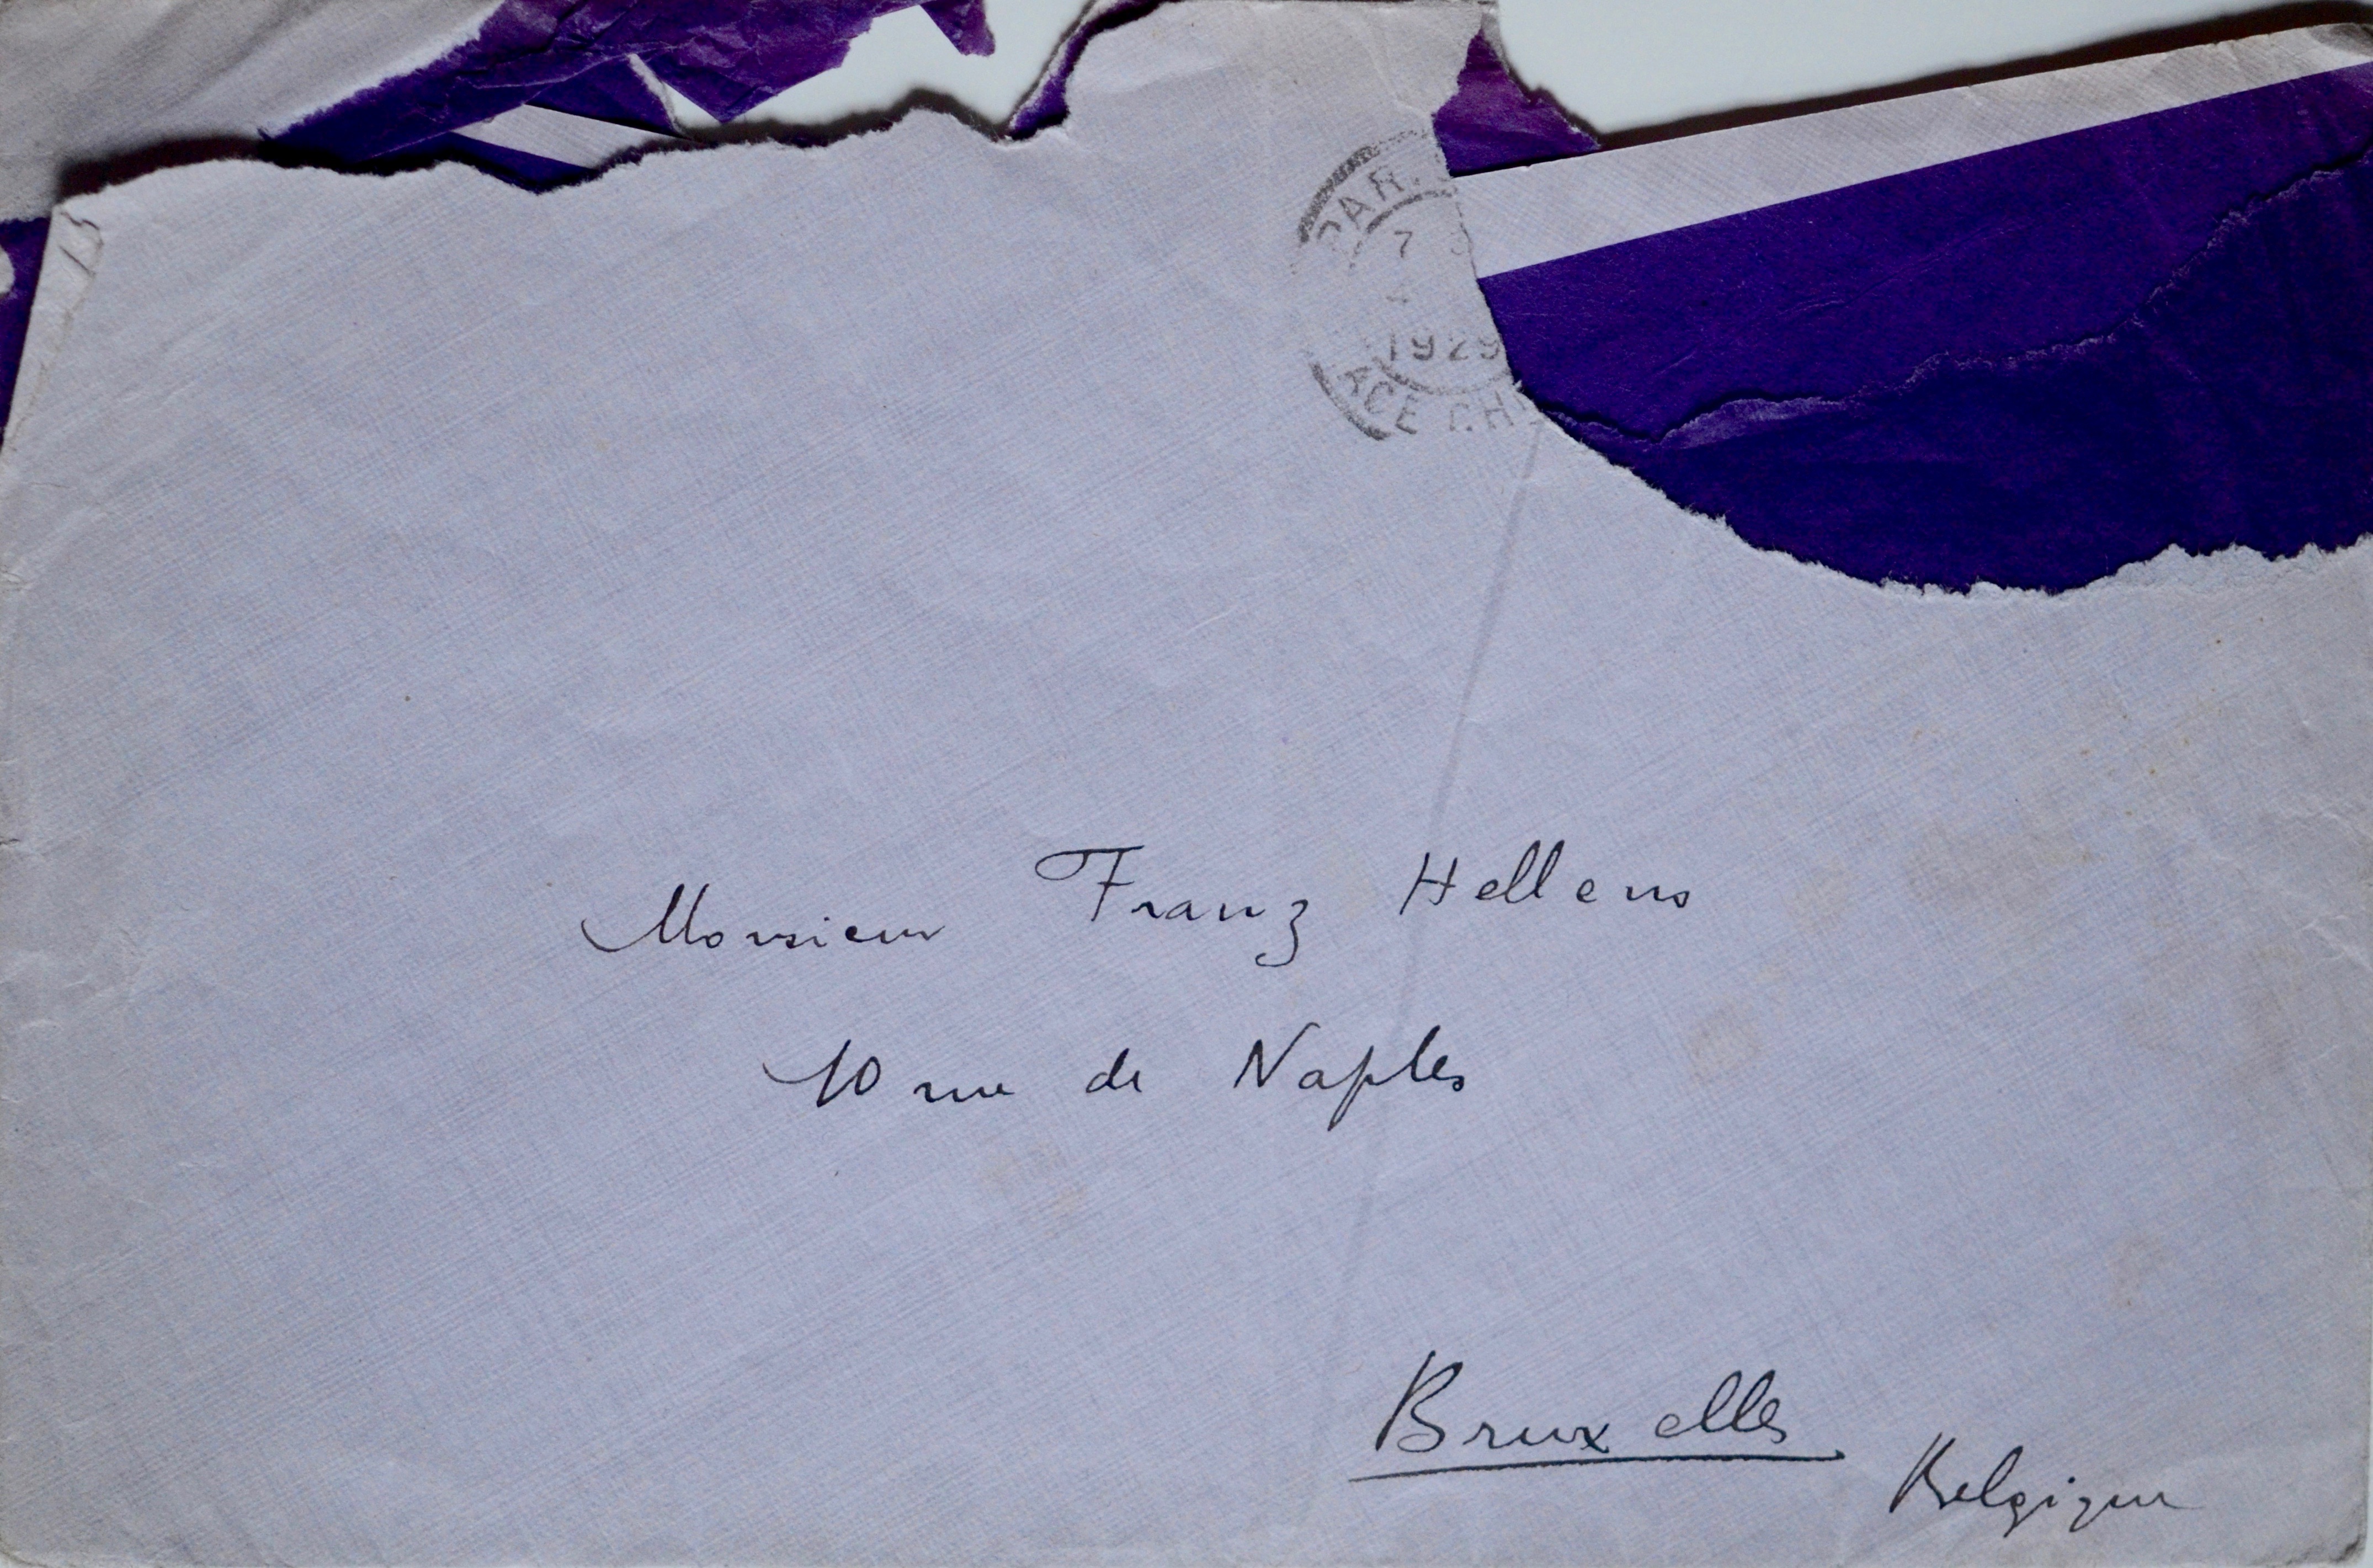 PAR
7
1929
ACE CH
Monsieur Franz Hellens
10 rue de Naples
Bruxelles
Belgique